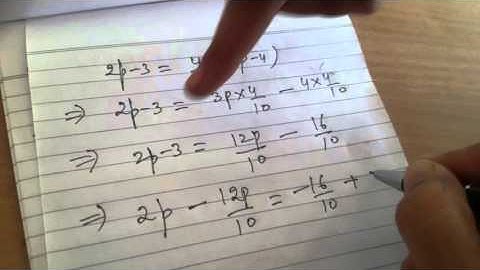 2p-3 = 4 p-4)
⇒ 2p-3 = 3p×4/10 - 4×4/10
⇒) 2p-3 = 12p/10 - 16/10
⇒ 2p - 12p/10 = -16/10 +